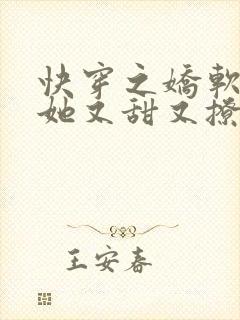 快穿之嬌軟
她又甜又撩
王安春